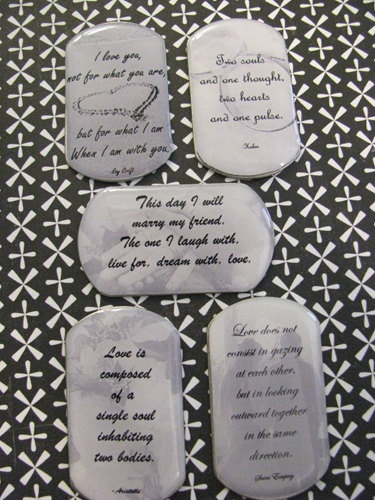 I love you,
not for what you are,
but for what I am
When I am with you.
Two souls
and one thought,
two hearts
and one pulse.
This day I will
marry my friend.
The one I laugh with,
live for, dream with, love.
Love is
composed
of a
single soul
inhabiting
two bodies.
-Aristotle
Love does not
consist in gazing
at each other,
but in looking
outward together
in the same
direction.